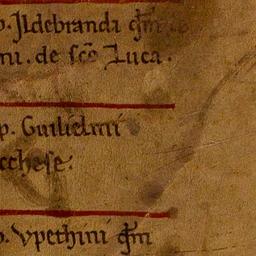 p. Jldebrandi qm̃
ni. de sc̃o Luca.
p. Guilielmi
cchese.
p. Vpethini qm̃